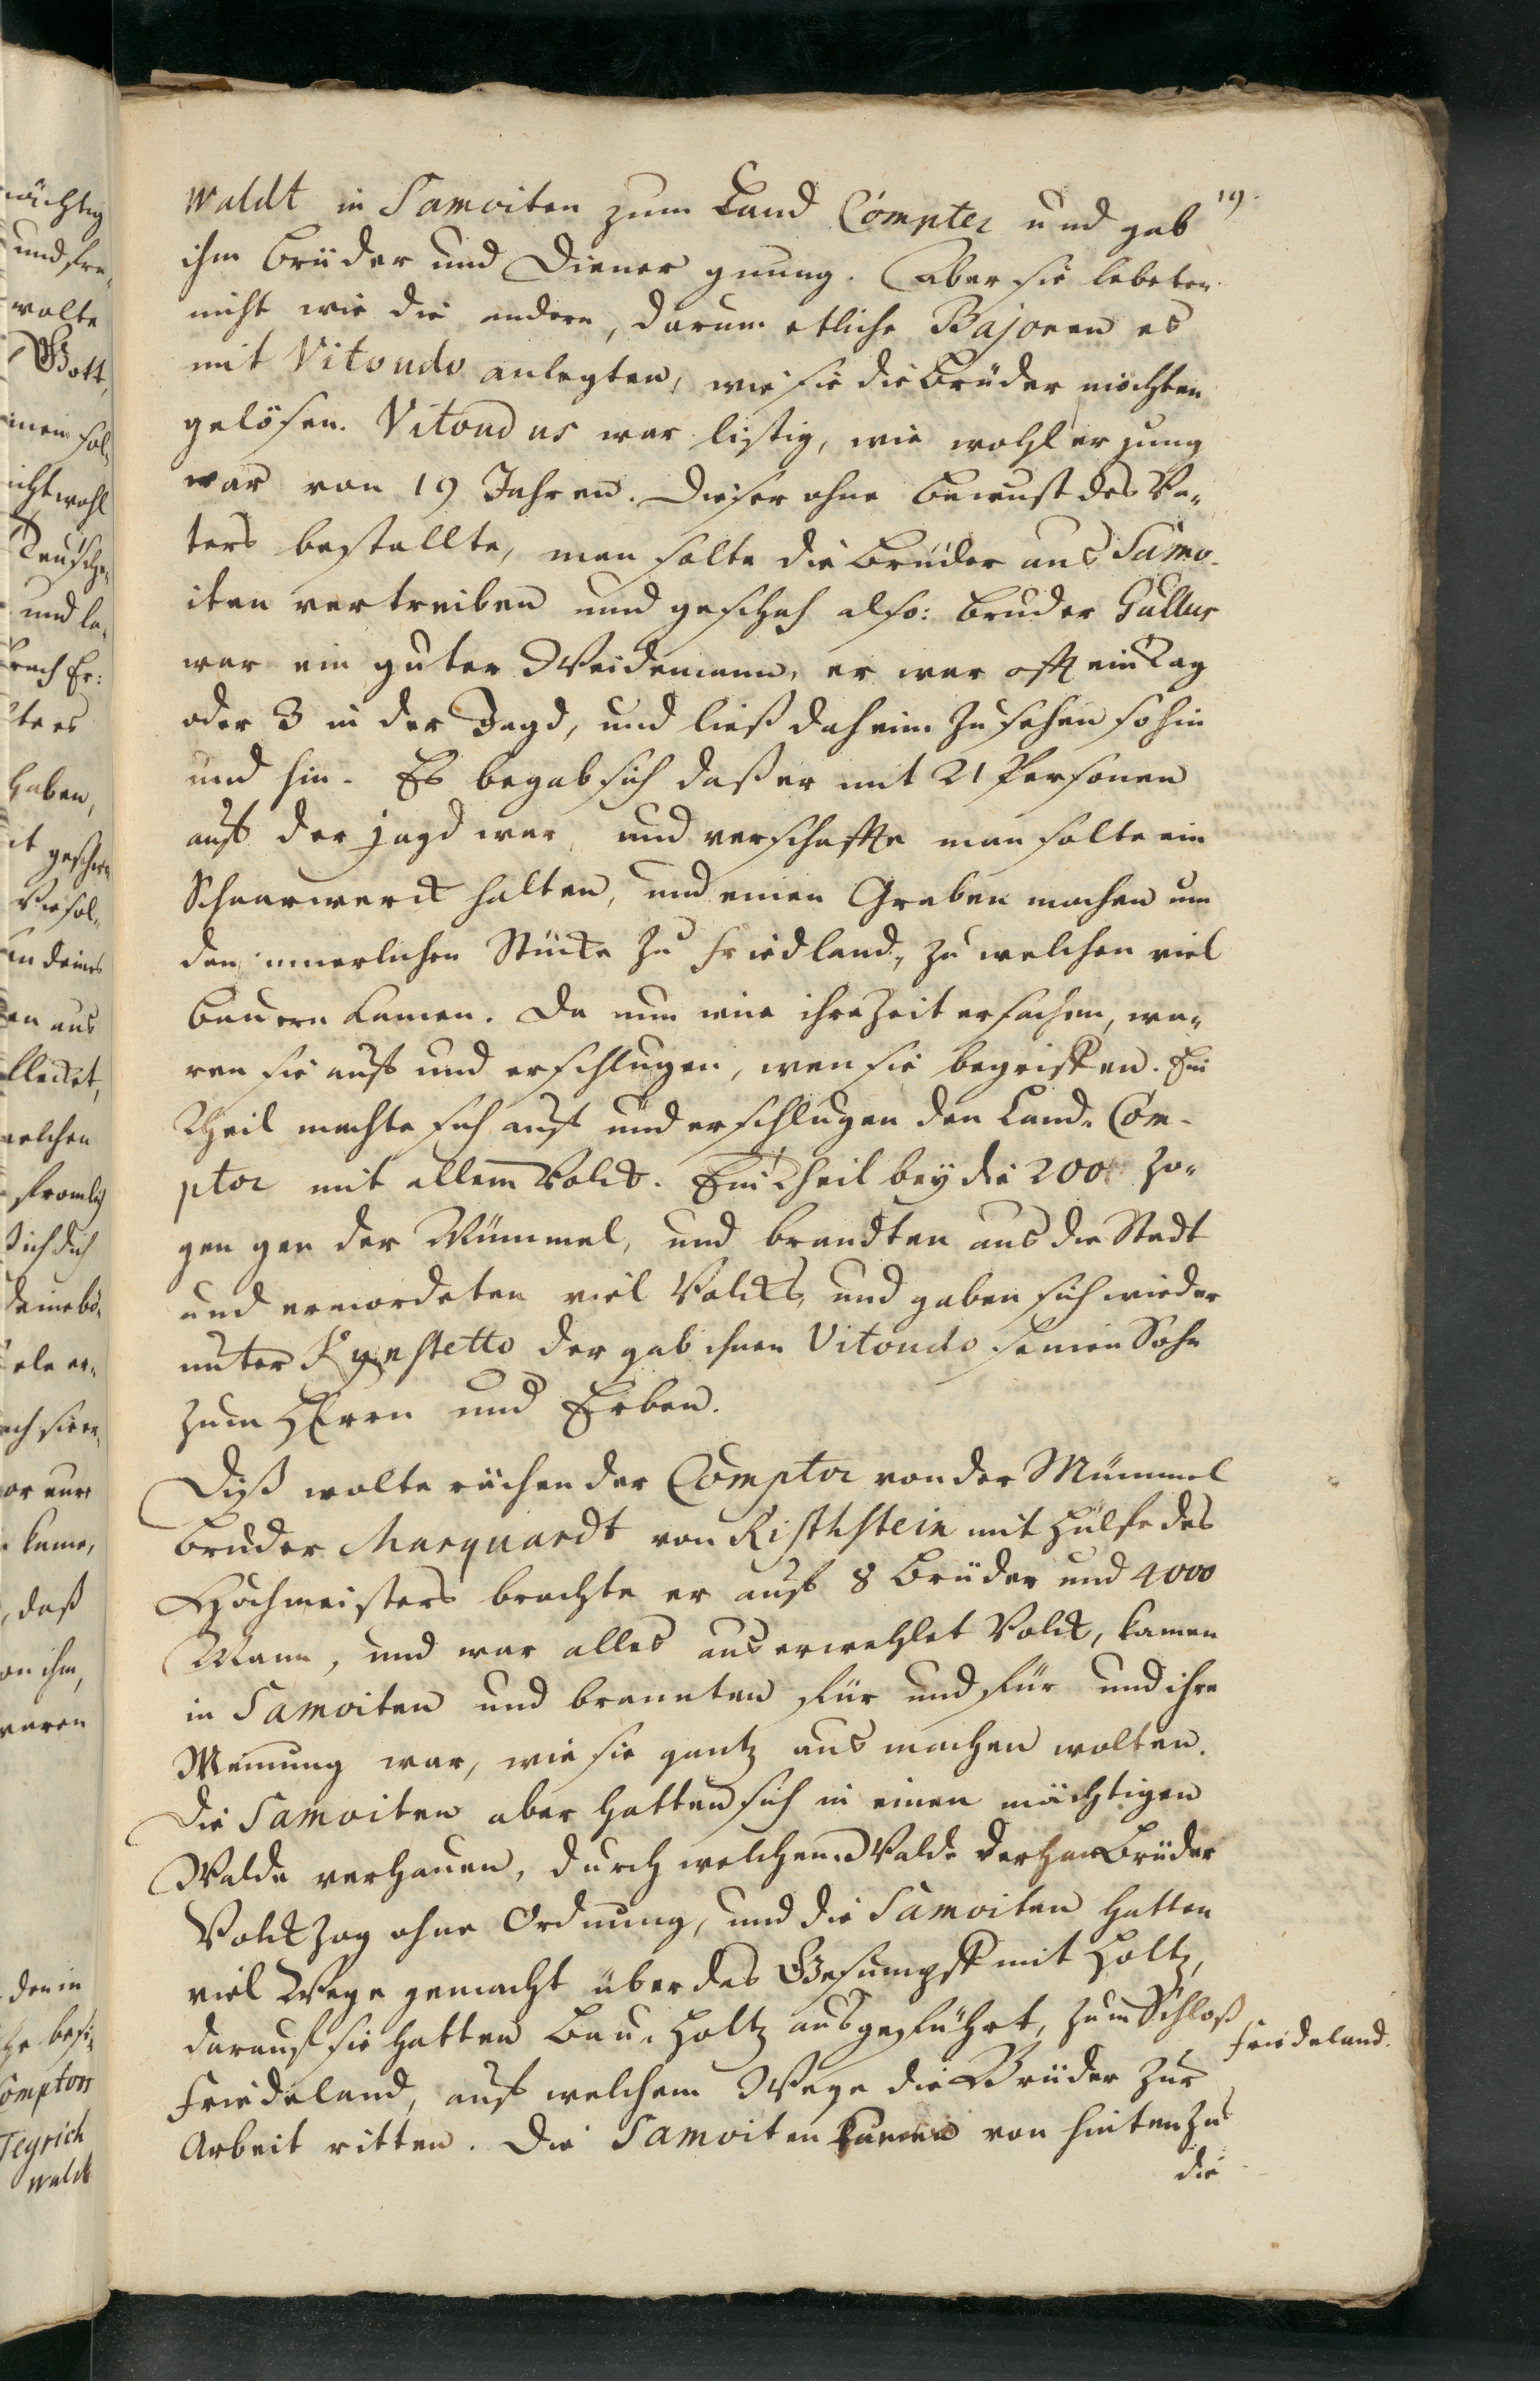 19.
waldt in Samoiten zum Land Compter und gab
ihm Brüder und Diener gnung. Aber sie lebeten
nicht wie die andern, darum etliche Bajoren es
mit Vitoudo anlegten, wie sie die Brüder möchten
gelösen. Vitoudus war listig, wie wohl er jung
war von 19 Jahren. Dieser ohne bewust des Va-
ters bestallte, man solte die Brüder aus Samo-
iten vertreiben und geschah also: Bruder Gallus
war ein guter Weidemann, er war offt ein Tag
oder 3 in der Jagd, und ließ daheim zusehen so hin
und hin. Es begab sich daß er mit 21 Personen
auf der Jagd war, und verschaffte man solte ein
Schaarwerck halten, und einen Graben machen um
den innerlichen Stücke zu Friedland, zu welchen viel
Bauern kamen. Da nun eine ihre Zeit ersahen, wa-
ren sie auf und erschlugen, wen sie begriffen. Ein
Theil machte sich auf und erschlugen den Land-Com-
ptor mit allem Volck. Ein Theil bey die 200 zo-
gen gen der Mümmel, und brandten aus die Stadt
und ermordeten viel Volcks, und gaben sich wieder
unter Kynstetto der gab ihnen Vitoudo seinen Sohn
zum HErrn und Erben.
Diß wolte rächen der Comptor von der Mümmel
Bruder Marquardt von Risthstein mit Hülfe des
Hochmeisters brachte er auf 8 Brüder und 4000
Mann, und war alles auserwehlet Volck, kamen
in Samoiten und brannten für und für und ihre
Meinung war, wie sie gantz aus machen wolten.
Die Samoiten aber hatten sich in einen mächtigen
Walde verhauen, durch welchen Walde der Brüder
Volck zog ohne Ordnung, und die Samoiten hatten
viel Wege gemacht über das Gesumpff mit Holtz,
darauf sie hatten Bau-Holtz ausgeführt, zum Schloß
Friedeland, auf welchem Wege die Brüder zur
Arbeit ritten. Die Samoiten kamen von hinten zu
die
Friedeland.